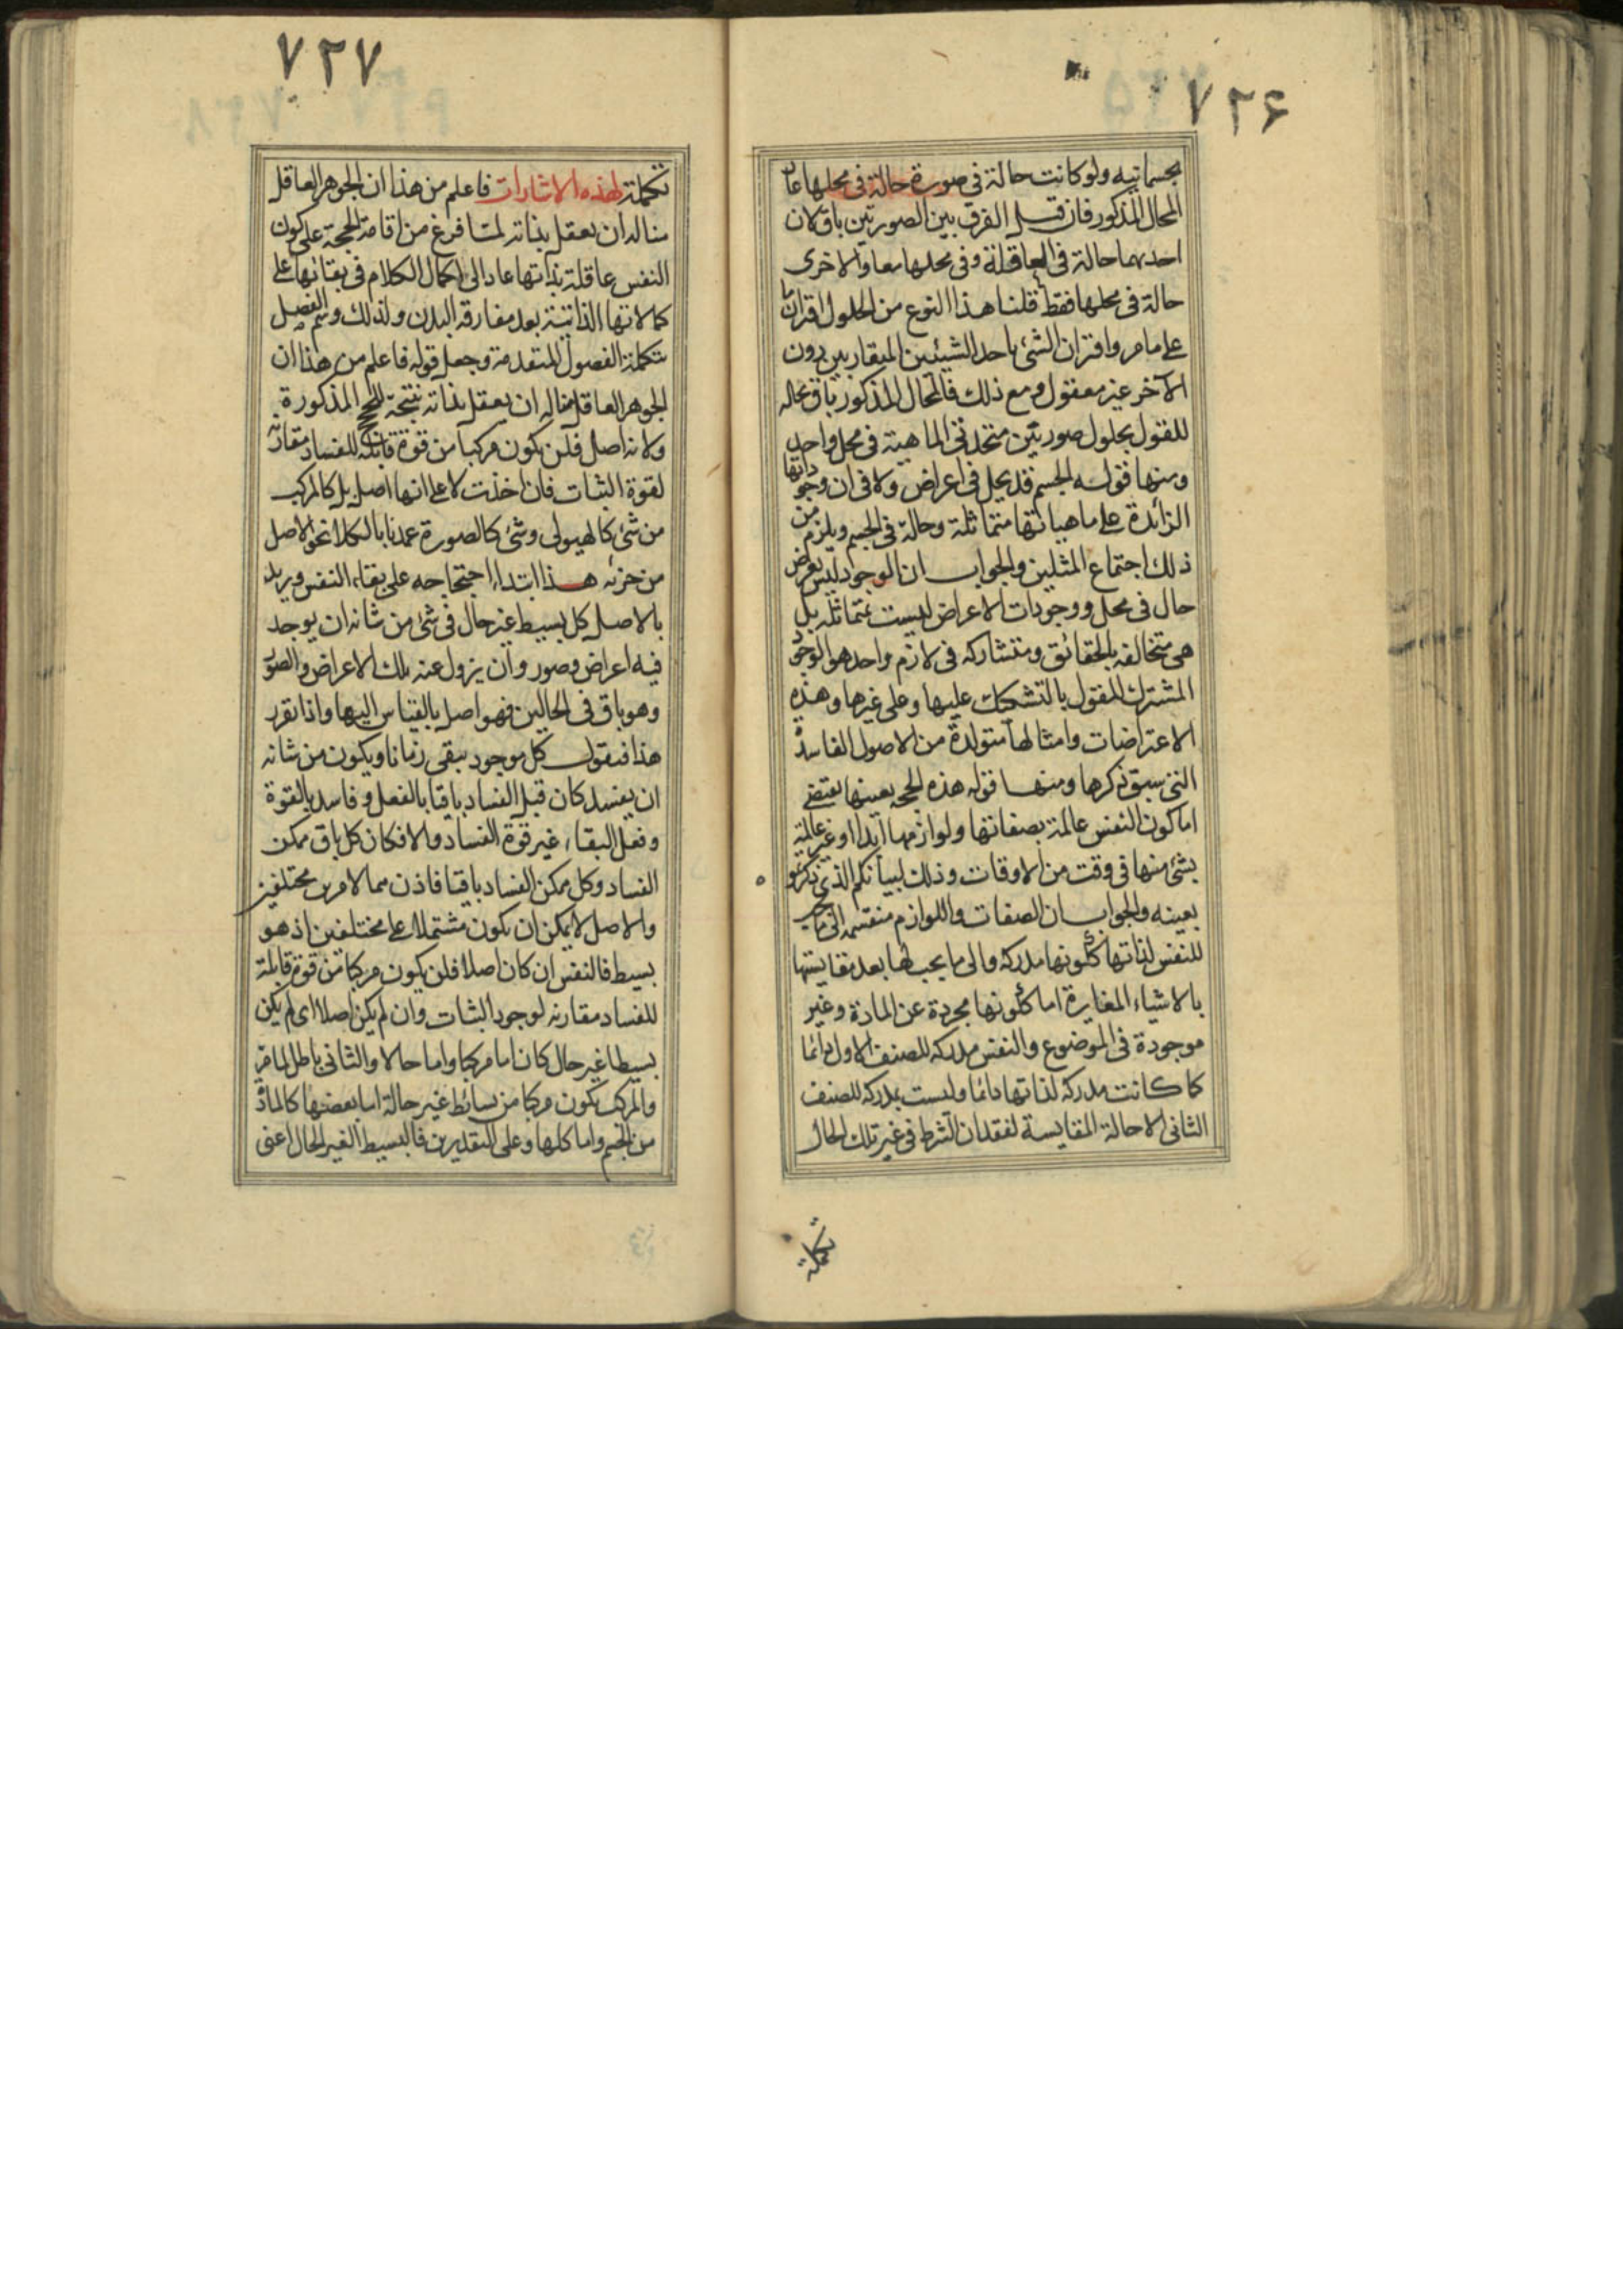 ۷۲۶
بجسمانيه ولو كانت حالة فى صورة حالة فى محلها عاد
المحال المذكور فان قيل الفرق بين الصورتين باق لان
احديهما حالة فى العاقلة وفى محلها معا والاخرى
حالة فى محلها فقط قلنا هذا النوع من الحلول اقتران ما
على ما مر واقتران الشئ باحد الشيئين المتقاربين دون
الآخر غير معقول ومع ذلك فالمحال المذكور باق بحاله
للقول بحلول صورتين متحدتى الماهية فى محل واحد
ومنها قوله الجسم قد يحل فى اعراض ولا فى ان وجوداتها
الزائدة على ماهياتها متماثلة وحالة فى الجسم ويلزم من
ذلك اجتماع المثلين والجواب ان الوجود ليس بعرض
حال فى محل ووجودات الاعراض ليست بمتماثله بل
هى متخالفه بالحقائق ومتشاركه فى لازم واحد هو الوجود
المشترك المقول بالتشكيك عليها وعلى غيرها وهذه
الاعتراضات وامثالها متولدة من الاصول الفاسدة
التى سبق ذكرها ومنها قوله هذه الحجه بعينها يقتضى
اما كون النفس عالمة بصفاتها ولوازمها ابدا او غير عالمة
بشئ منها فى وقت من الاوقات وذلك لبيانكم الذى ذكرتموه
بعينه والجواب ان الصفات واللوازم منقسمه الى ما يجب
للنفس لذاتها ككونها مدركه والى ما يجب لها بعد مقايستها
بالاشياء المغايرة اما ككونها مجردة عن المادة وغير
موجودة فى الموضوع والنفس مدركه للصنف الاول دائما
كما كانت مدركة لذاتها دائما وليست بمدركه للصنف
الثانى الا حالة المقايسة لفقدان الشرط فى غير تلك الحال
تكملة
۷۲۷
تكملة لهذه الاشارات فاعلم من هذا ان الجوهر العاقل
منا له ان يعقل بذاته لما فرغ من اقامة الحجة على كون
النفس عاقلة بذاتها عاد الى اكمال الكلام فى بقائها على
كمالاتها الذاتية بعد مفارقه البدن ولذلك وسم الفصل
بتكملة الفصول المتقدمة وجعل قوله فاعلم من هذا ان
الجوهر العاقل منا له ان يعقل بذاته نتيجة للحجج المذكورة
ولانه اصل فلن يكون مركبا من قوة قابلة للفساد مقارنة
لقوة الثبات فان اخذت لا على انها اصل بل كالمركب
من شئ كالهيولى وشئ كالصورة عمدنا بالكلام نحو الاصل
من جزئه هذا ابتداء احتجاجه على بقاء النفس ويريد
بالاصل كل بسيط غير حال فى شئ من شانه ان يوجد
فيه اعراض وصور وان يزول عنه تلك الاعراض والصور
وهو باق فى الحالين فهو اصل بالقياس اليها واذا تقرر
هذا فنقول كل موجود يبقى زمانا ويكون من شانه
ان يفسد كان قبل الفساد باقيا بالفعل وفاسد بالقوة
وفعل البقاء غير قوة الفساد والا فكان كل باق ممكن
الفساد وكل ممكن الفساد باقيا فاذن هما لامرين مختلفين
والاصل لا يمكن ان يكون مشتملا على مختلفين اذ هو
بسيط فالنفس ان كان اصلا فلن يكون مركبا من قوة قابلة
للفساد مقارنه لوجود الثبات وان لم يكن اصلا اى لم يكن
بسيطا غير حال كان اما مركبا واما حالا والثانى باطل لما مر
والمركب يكون مركبا من بسائط غير حالة اما بعضها كالمادة
من الجسم واما كلها وعلى التقديرين فالبسيط الغير الحال اعنى